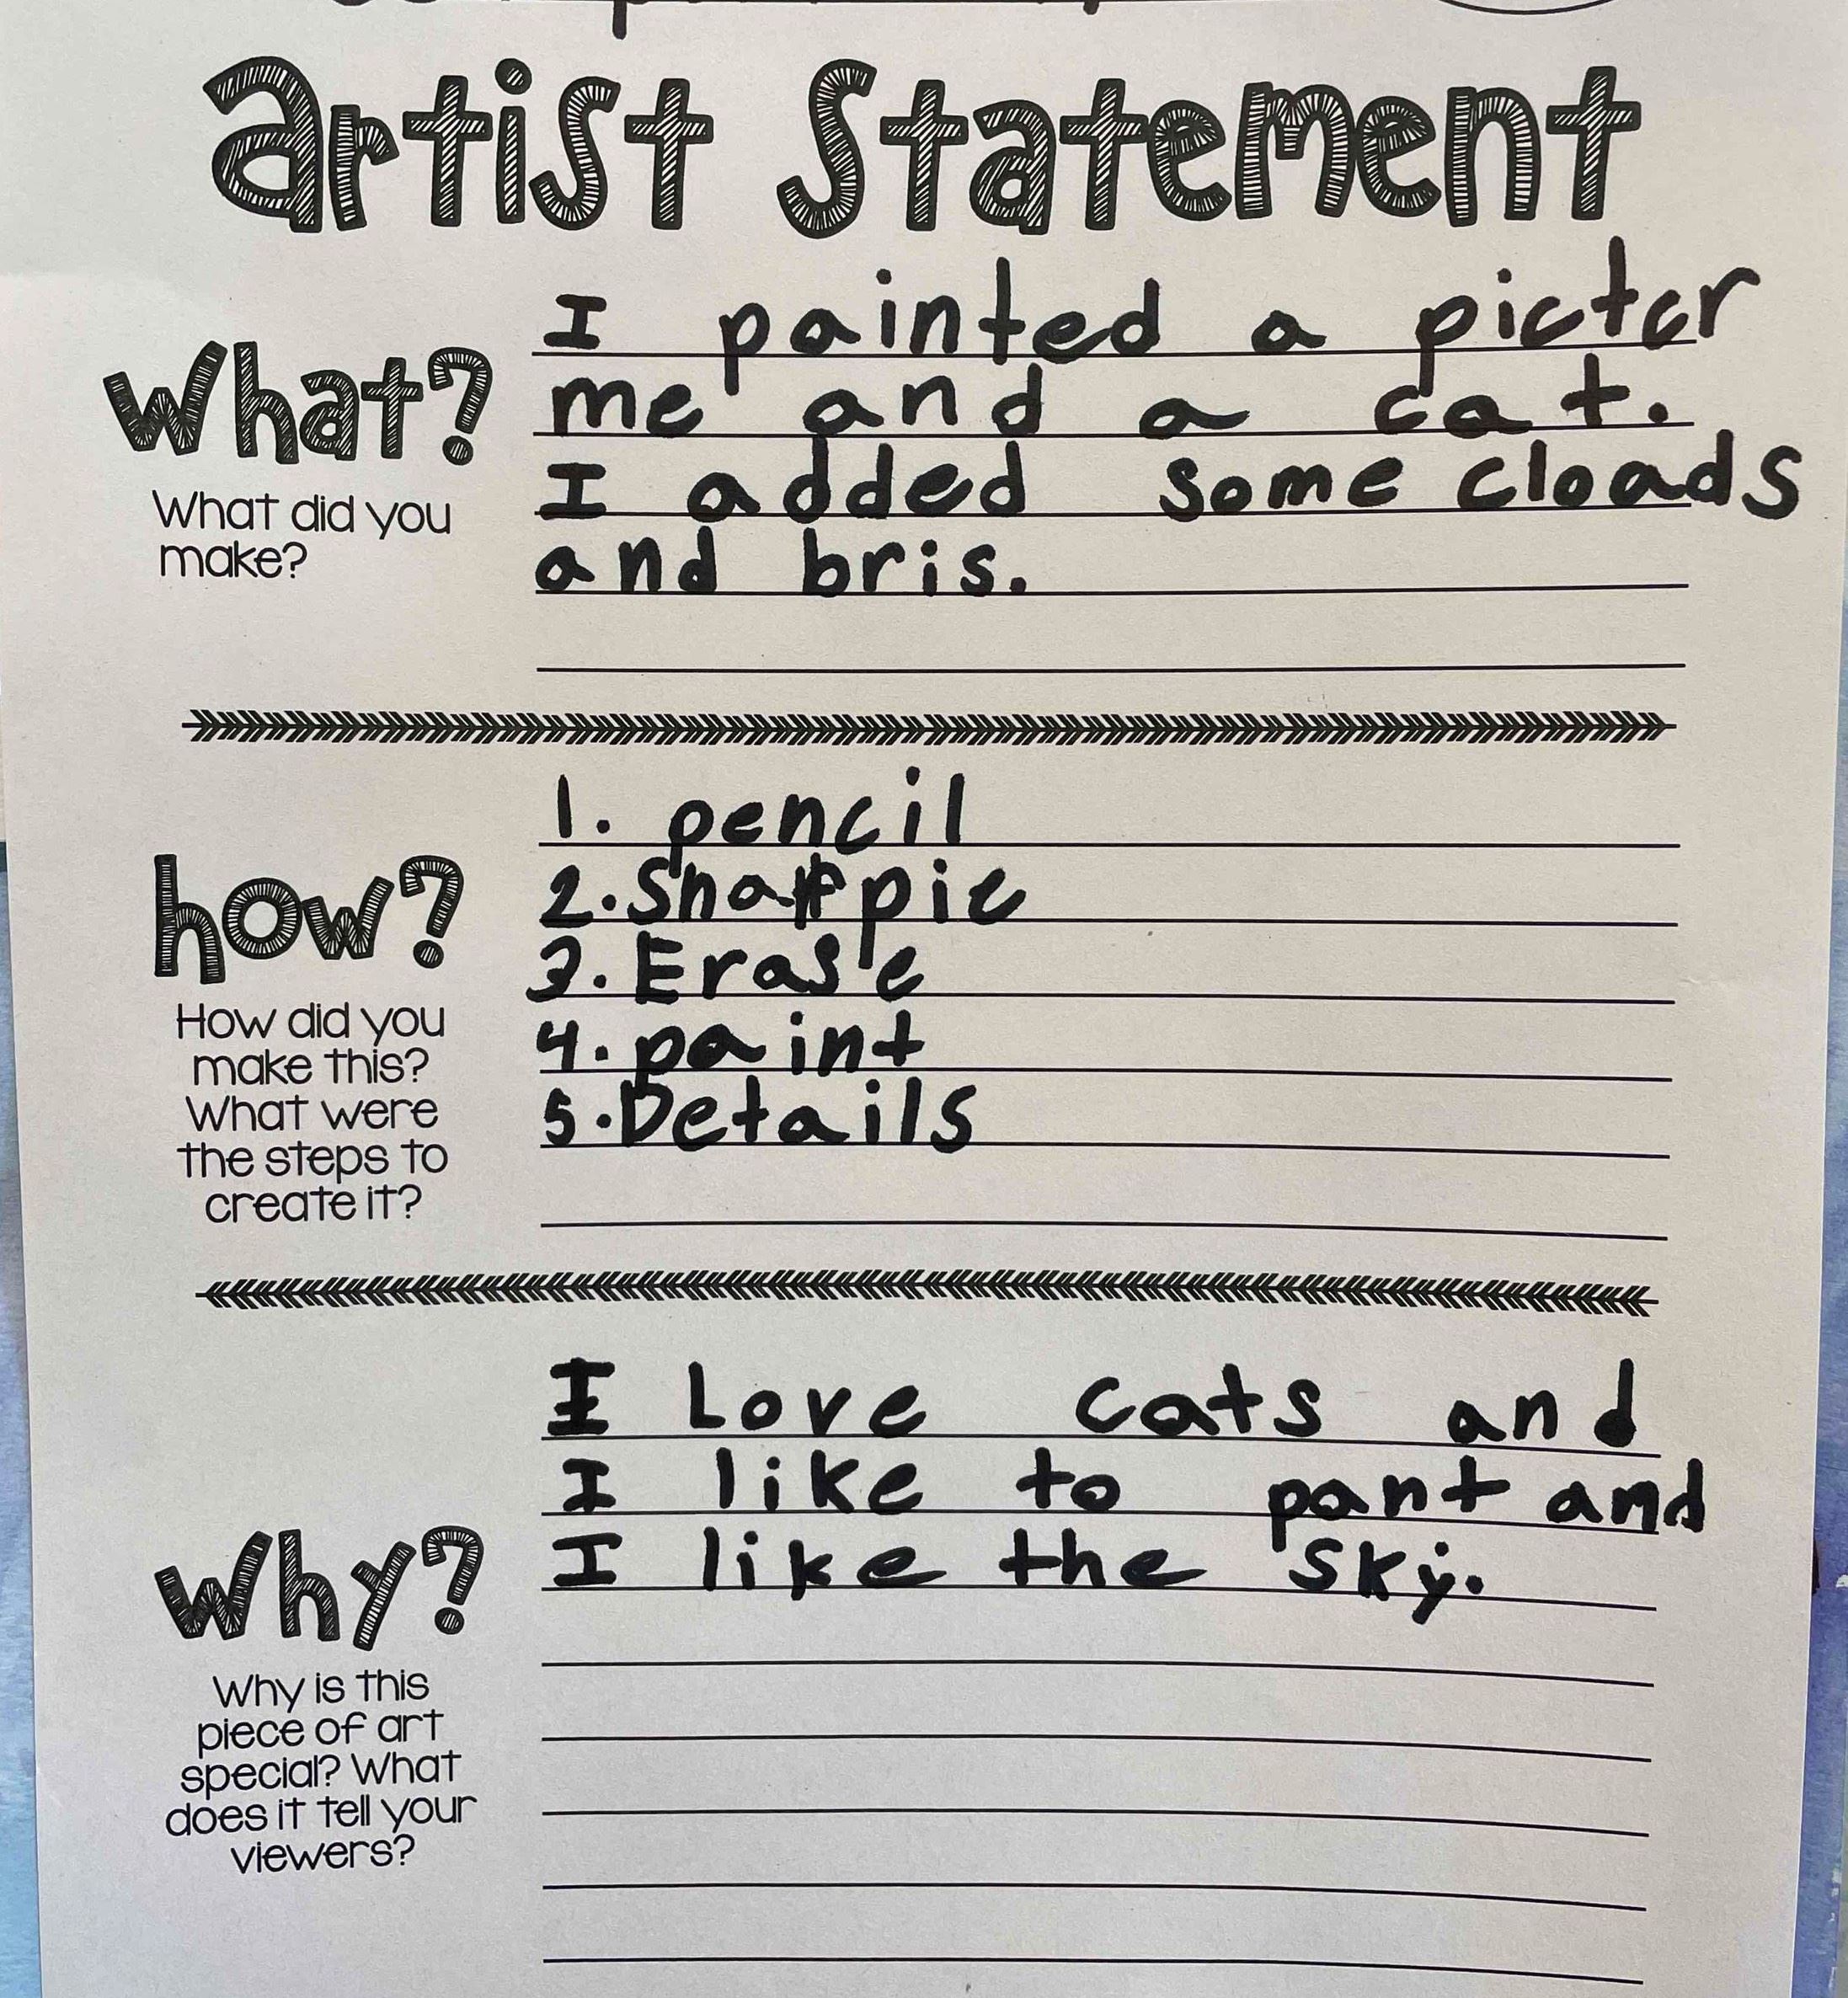 artist Statement
What?
What did you
make?
I painted a picter
me and a cat.
I added some cloads
and bris.
how?
How did you
make this?
What were
the steps to
create it?
1. pencil
2. Sharppie
3. Erase
4. paint
5. Details
Why?
Why is this
piece of art
special? What
does it tell your
viewers?
I Love cats and
I like to pant and
I like the sky.